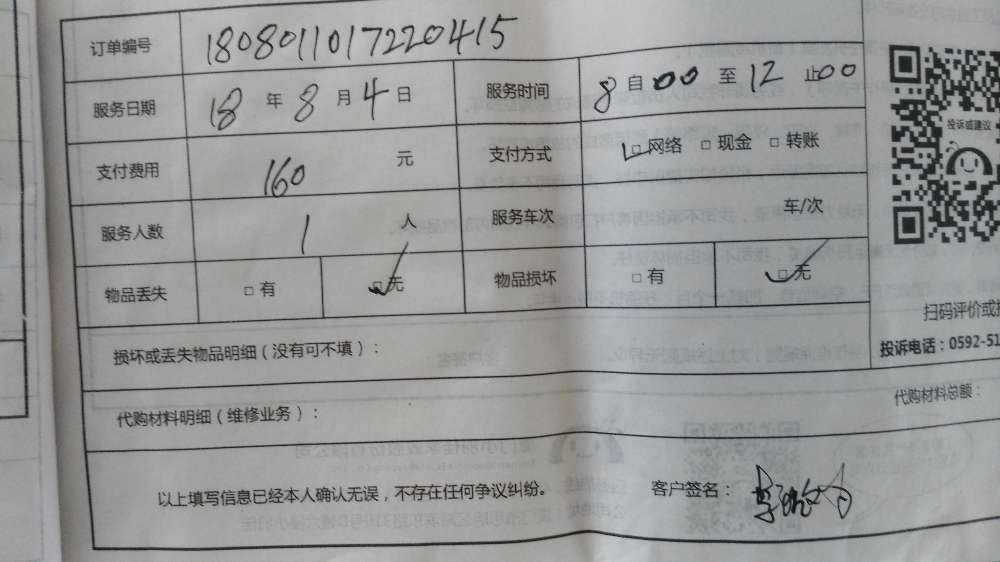 订单编号 1808011017220415
服务日期 18 年 8 月 4 日 服务时间 8 自 00 至 12 止 00
投诉或建议
支付费用 160 元 支付方式 ☑网络 □现金 □转账
服务人数 1 人 服务车次 车/次
物品丢失 □有 ☑无 物品损坏 □有 ☑无
扫码评价或
损坏或丢失物品明细（没有可不填）：
投诉电话：0592-51
代购材料明细（维修业务）：
代购材料总额：
以上填写信息已经本人确认无误，不存在任何争议纠纷。 客户签名：